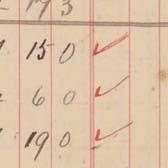 173
15 0 ✓
6 0 ✓
19 0 ✓